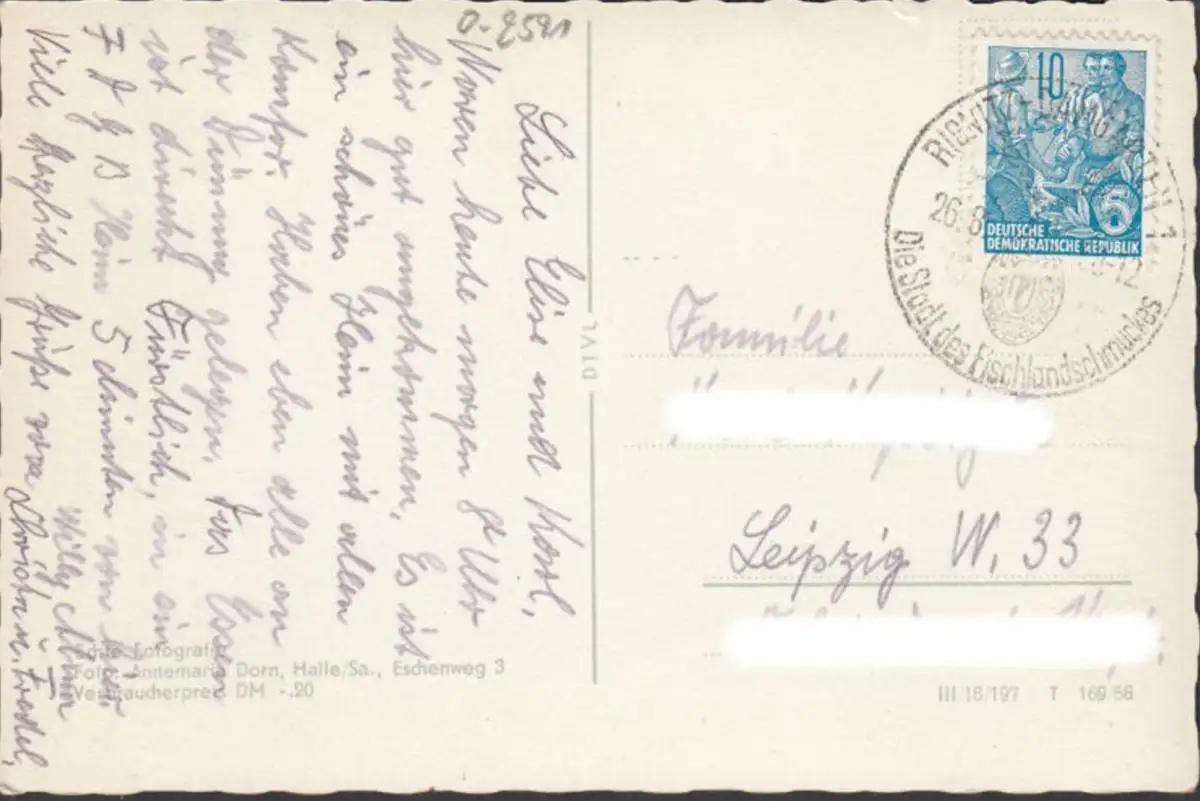 O-2591
Liebe Elise und Karl,
Waren heute morgen 8 Uhr
hier gut angekommen. Es ist
ein schönes Heim mit allen
Komfor. Haben eben alle an
der Dünung gelegen, Das Essen
ist direkt Fürstlich, in ein
F D G B Heim 5 Minuten vom
Viele herzliche Grüße von
Willy
Christa u. Friedel,
Echte Fotografie
Foto: Annemarie Dorn, Halle/Sa., Eschenweg 3
Verbraucherpreis DM -.20
10
5
DEUTSCHE
DEMOKRATISCHE REPUBLIK
RIBNITZ-DAMGARTEN 1
26.8
-12
Die Stadt des Fischlandschmuckes
Familie
Leipzig W. 33
III/18/197 T 169/58